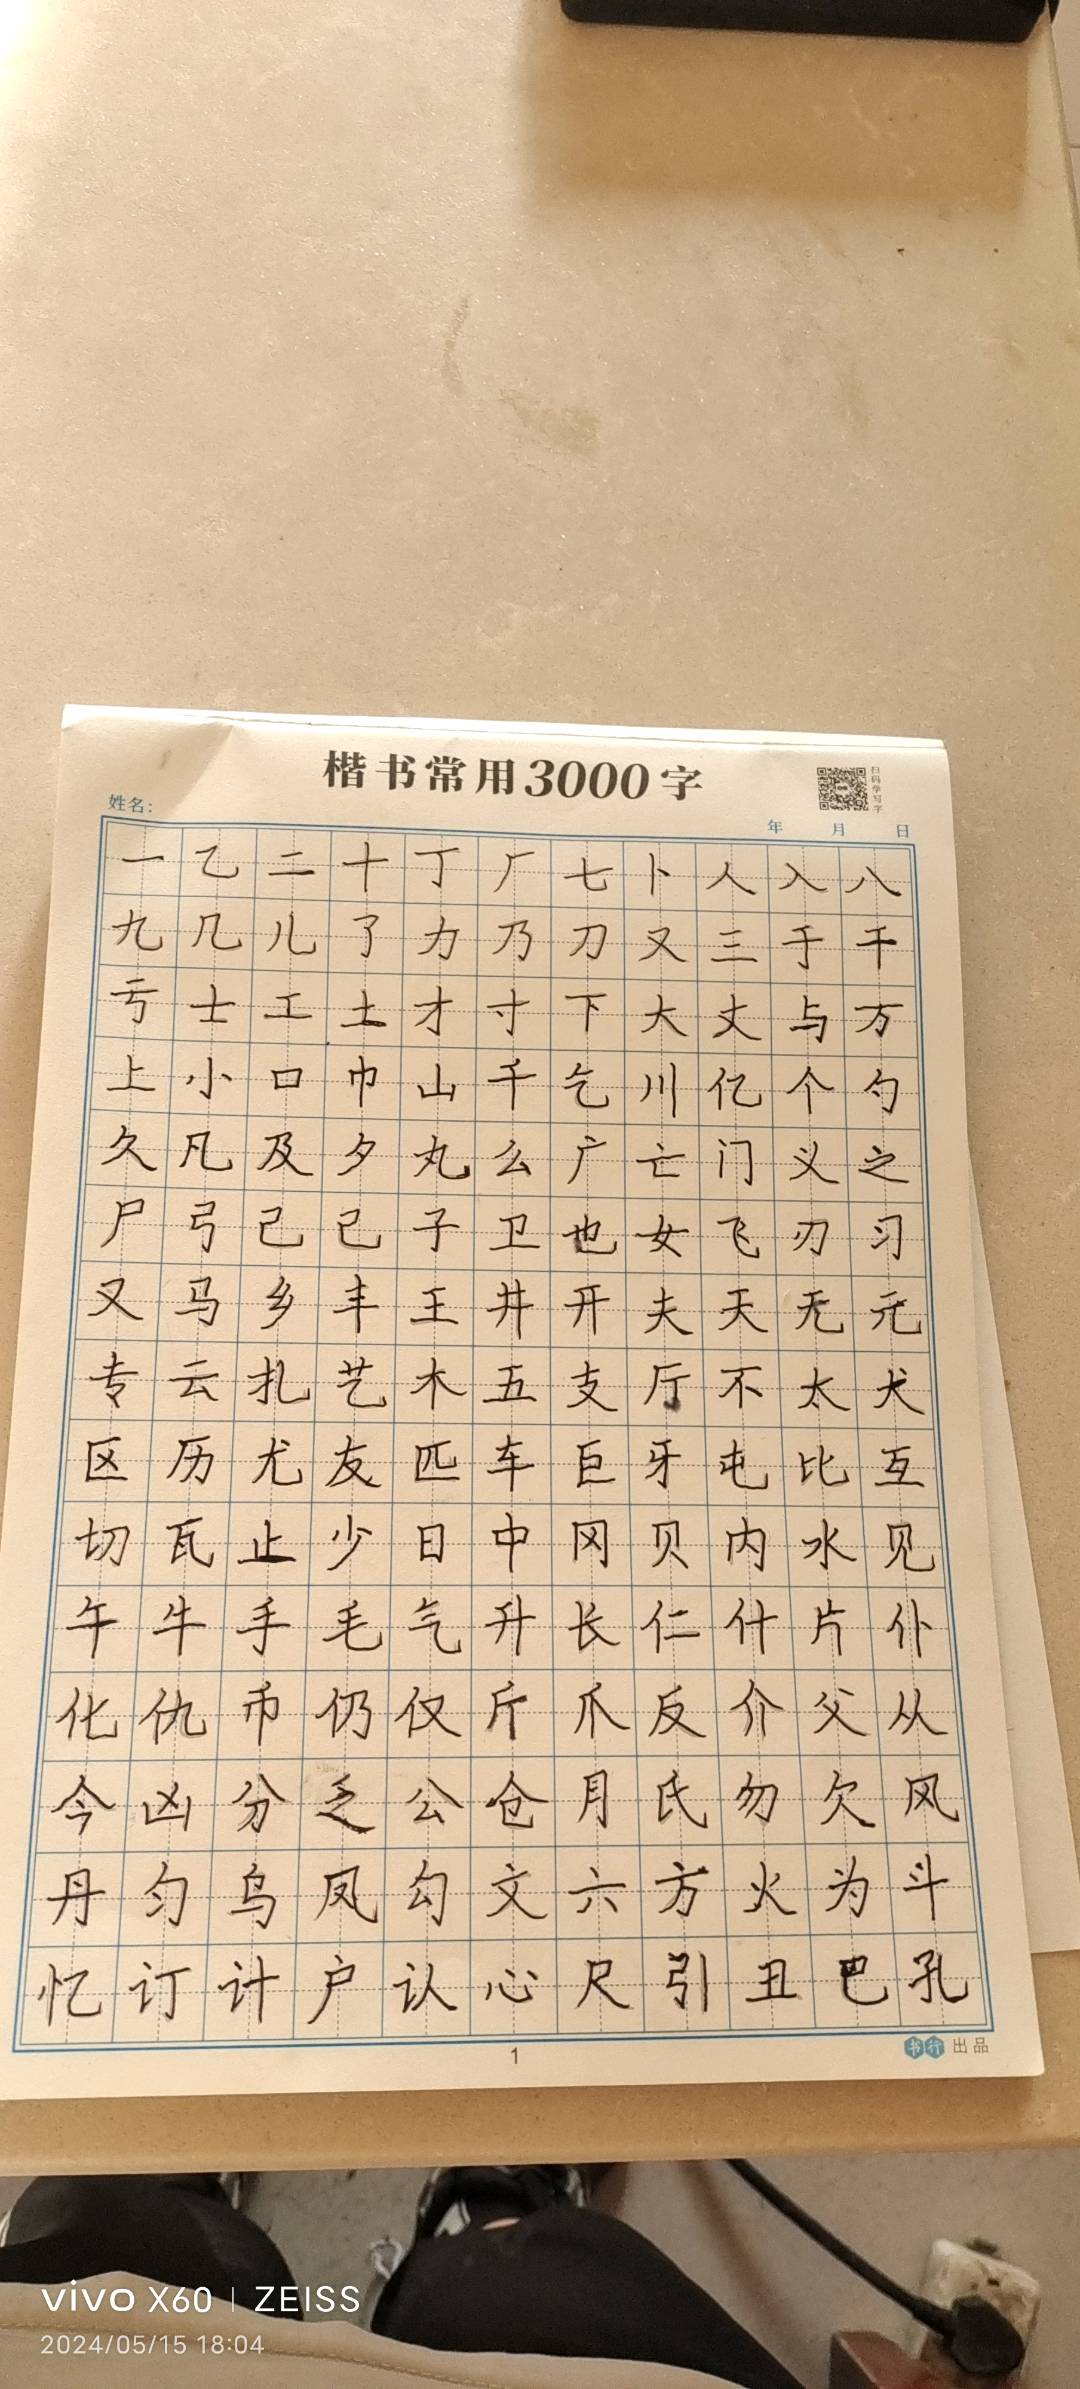 楷书常用3000字
扫码学写字
姓名：
年 月 日
一乙二十丁厂七卜人入八
九几儿了力乃刀又三于干
亏士工土才寸下大丈与万
上小口巾山千乞川亿个勺
久凡及夕丸么广亡门义之
尸弓己已子卫也女飞刃习
又马乡丰王井开夫天无元
专云扎艺木五支厅不太犬
区历尤友匹车巨牙屯比互
切瓦止少日中冈贝内水见
午牛手毛气升长仁什片仆
化仇币仍仅斤爪反介父从
今凶分乏公仓月氏勿欠风
丹匀乌凤勾文六方火为斗
忆订计户认心尺引丑巴孔
1
书行 出品
vivo X60 | ZEISS
2024/05/15 18:04